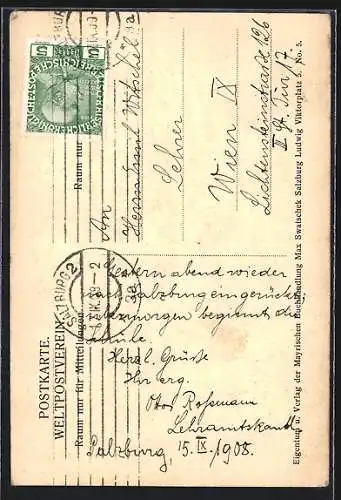 POSTKARTE.
WELTPOSTVEREIN.
Raum nur für Mitteilungen.
Raum nur
SALZBURG 2
5
An
Herrn
Lehrer
Wien IX
Lichtensteinstraße 126
II St. Tür 7.
Gestern abend wieder
nach Salzburg eingerückt;
übermorgen beginnt die
Schule.
Herzl. Grüße
Ihr erg.
Otto Roßmann
Lehramtskand.
Salzburg, 15. IX. 1908.
Eigentum u. Verlag der Mayrischen Buchhandlung Max Swatschek Salzburg Ludwig Viktorplatz 5. No. 5.